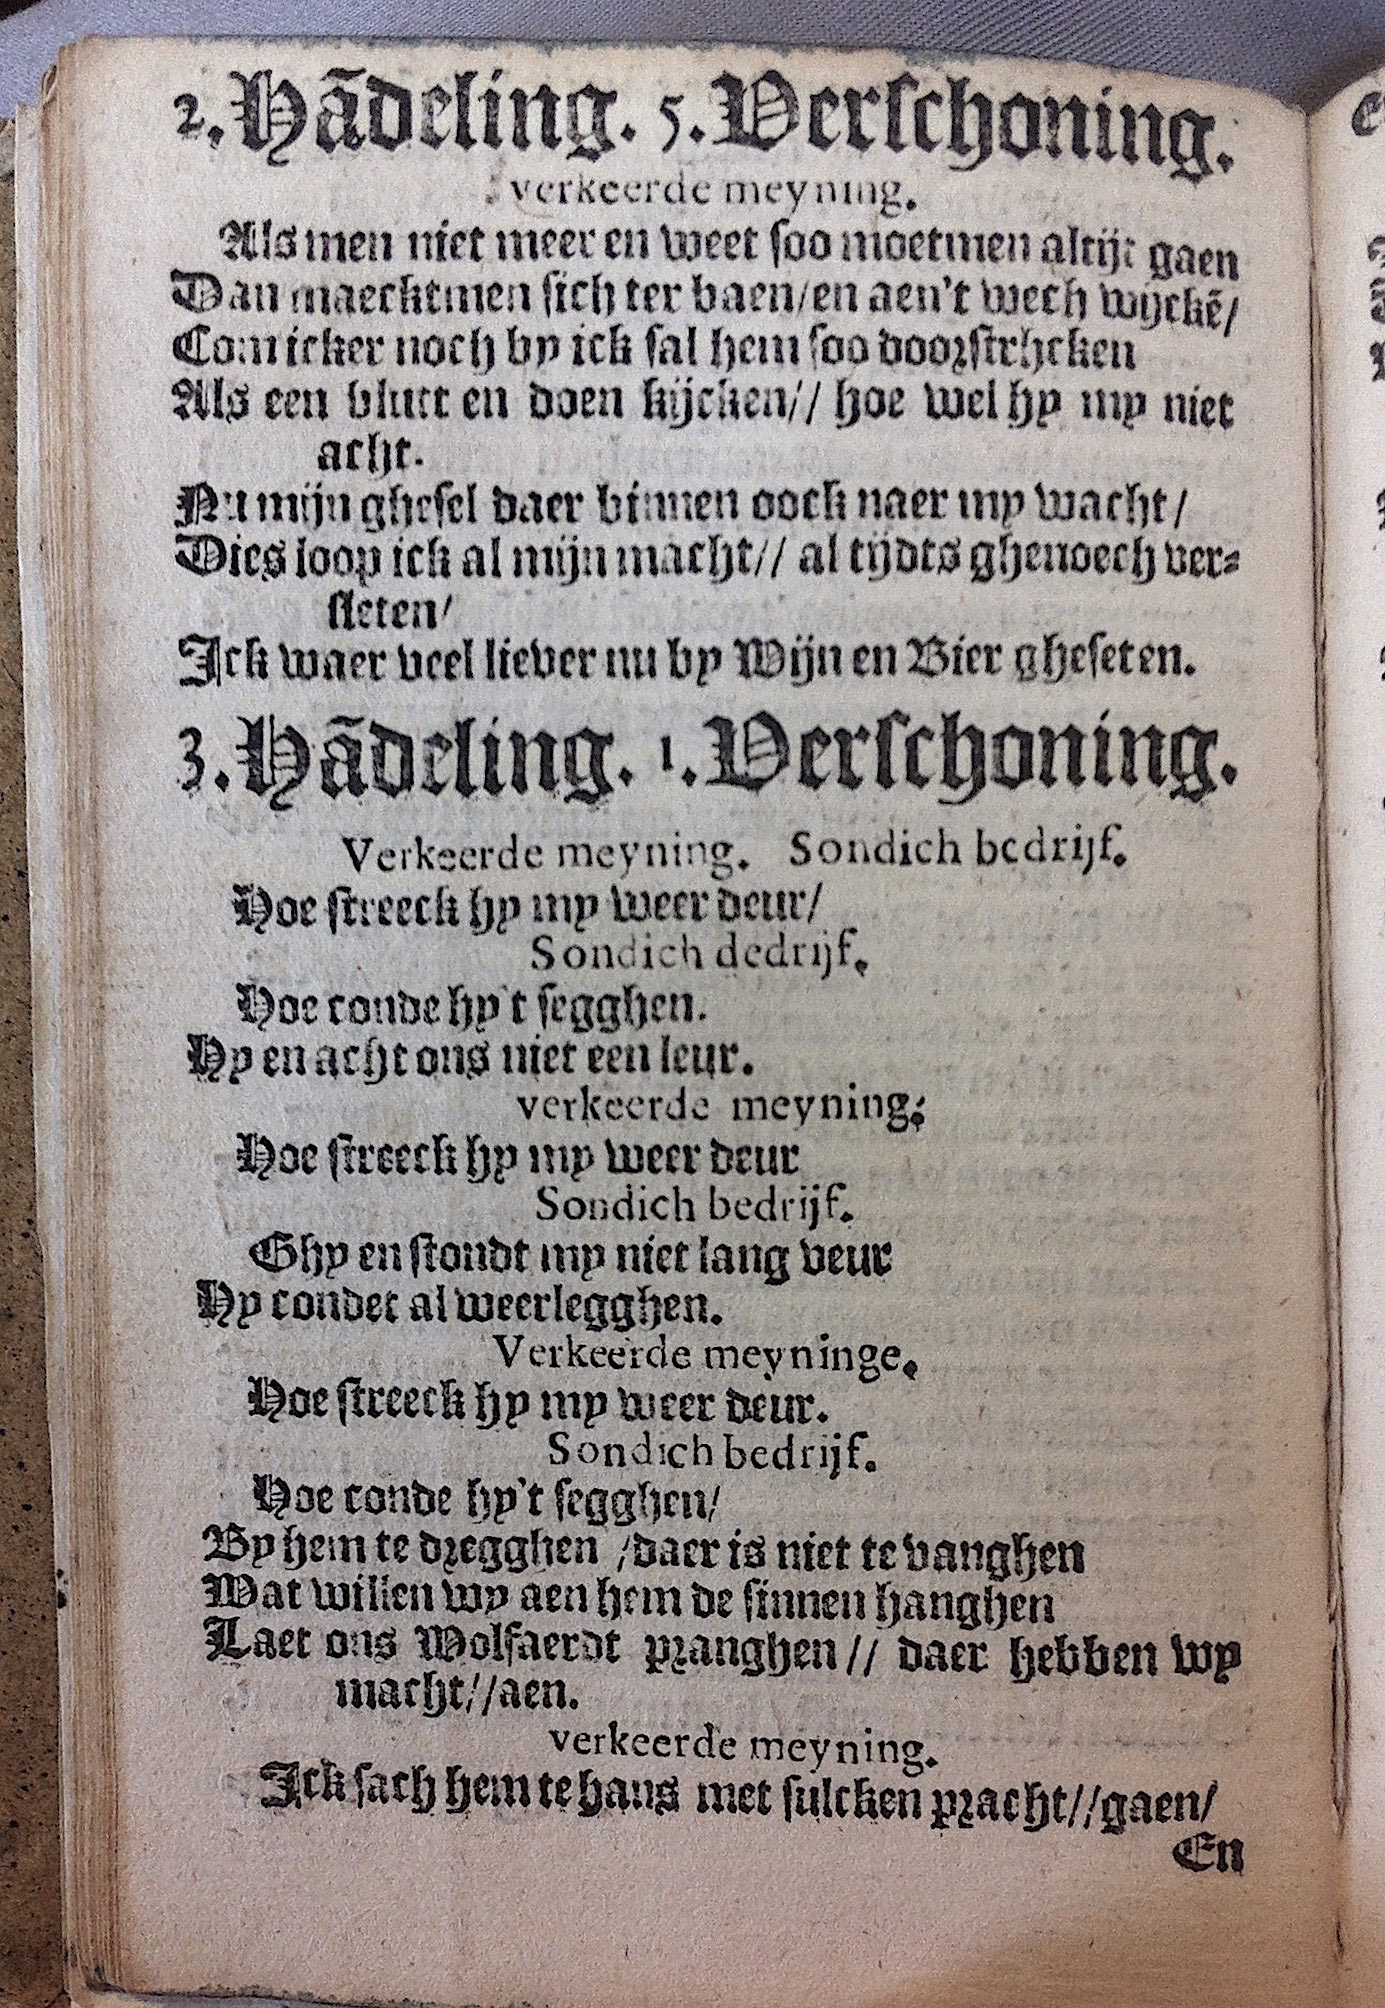 2. Hãdeling. 5. Verschoning.
verkeerde meyning.
Als men niet meer en weet soo moetmen altijt gaen
Dan maecktmen sich ter baen/en aen't wech wijckẽ/
Com icker noch by ick sal hem soo doorstrhcken
Als een blutt en doen kijcken// hoe wel hy my niet
acht.
Nu mijn ghesel daer binnen oock naer my wacht/
Dies loop ick al mijn macht// al tijdts ghenoech ver=
sleten/
Ick waer veel liever nu by Wijn en Bier gheseten.
3. Hãdeling. 1. Verschoning.
Verkeerde meyning. Sondich bedrijf.
Hoe streeck hy my weer deur/
Sondich dedrijf.
Hoe conde hy't segghen.
Hy en acht ons niet een leur.
verkeerde meyning;
Hoe streeck hy my weer deur
Sondich bedrijf.
Ghy en stondt my niet lang veur
Hy condet al weerlegghen.
Verkeerde meyninge.
Hoe streeck hy my weer deur.
Sondich bedrijf.
Hoe conde hy't segghen/
By hem te dregghen /daer is niet te vanghen
Wat willen wy aen hem de sinnen hanghen
Laet ons Wolfaerdt pranghen// daer hebben wy
macht//aen.
verkeerde meyning.
Ick sach hem te haus met sulcken pracht//gaen/
En